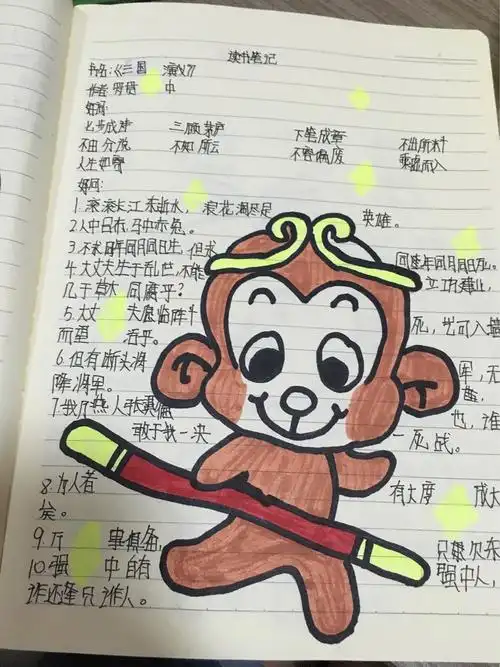 读书笔记
书名:《三国 演义》
作者:罗贯 中
好词:
七步成诗 三顾茅庐 下笔成章 不出所料
不由分说 不知所云 不容偏废 乘虚而入
人生如寄
好句:
1.滚滚长江东逝水, 浪花淘尽 英雄。
2.人中吕布,马中赤兔。
3.不求同年同月同日生,但求 同年同月同日死。
4.大丈夫生于乱世,不能 立功建业,
几于草木同腐乎?
5.大丈 夫 阵斗 死,岂可入墙
而望 活乎。
6.但有断头将 军,无
降将军。
7.我乃燕人张翼德 也,谁
敢于我一决 一死战。
8.为人者 有大度 成大
矣。
9.斤 毕俱备, 只欠东
10.强 中自有 强中人,
诈还逢 诈人。